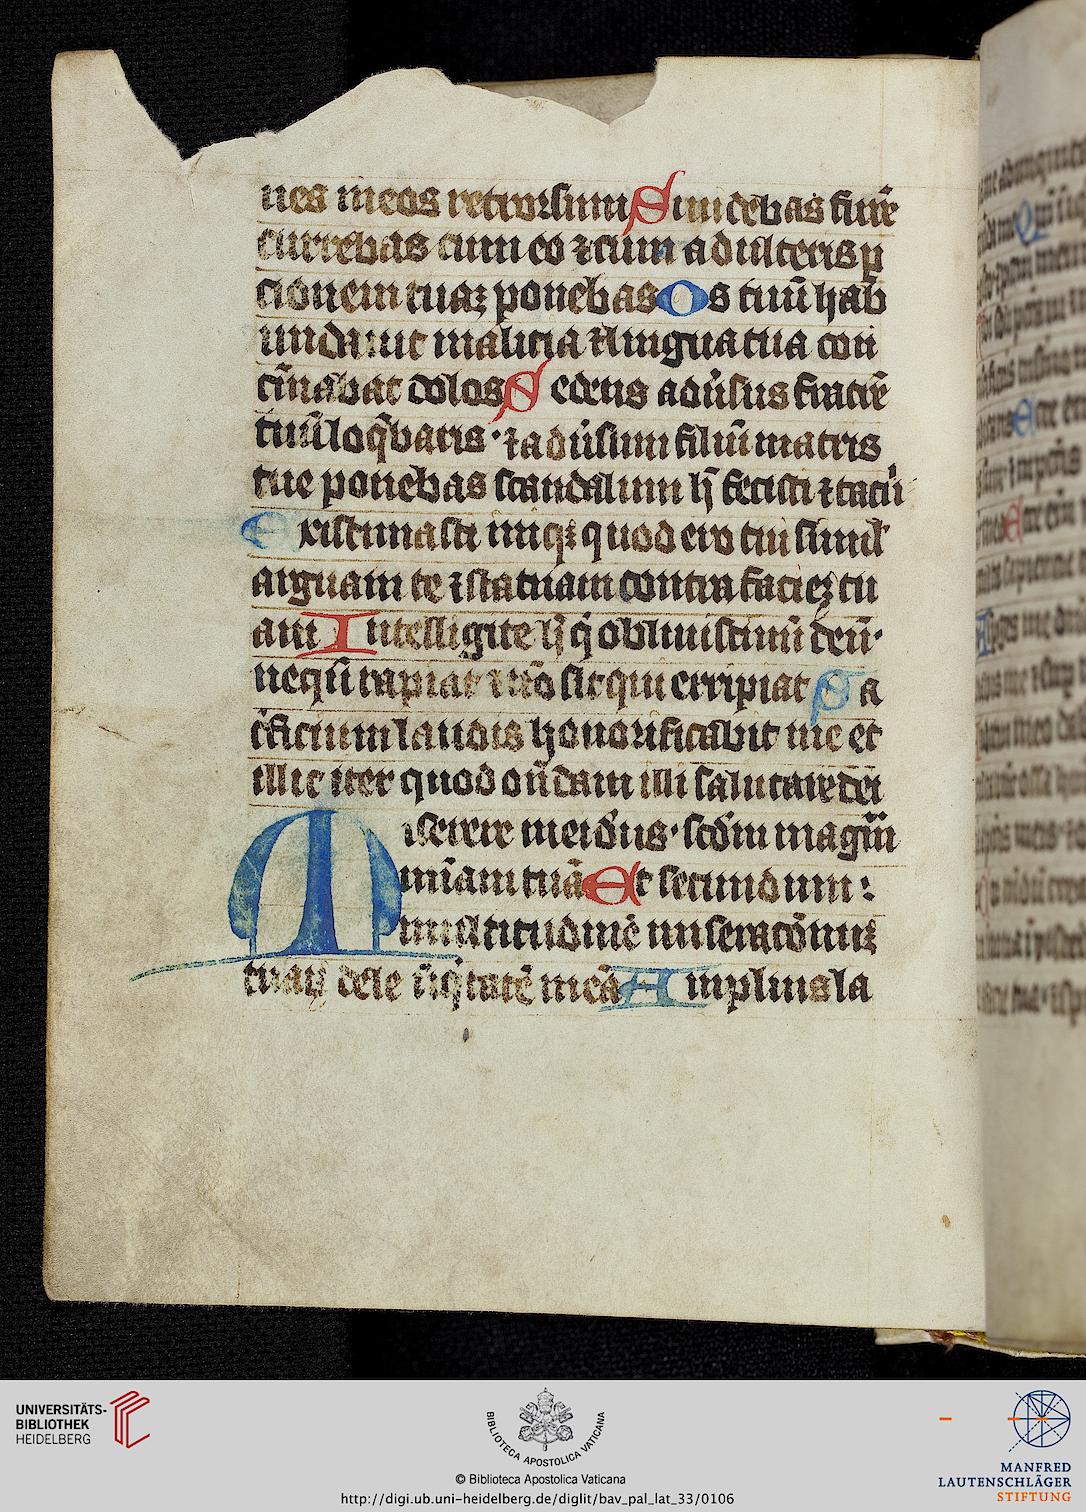 nes meos retrorsum Si uidebas furē
currebas cum eo ⁊ cum adulteris ꝑ
cionem tuaꝫ ponebas Os tuū hab
undauit malicia ⁊ lingua tua con
cīnabat dolos Sedens adūsus fratrē
tuū loq̄baris · ⁊ adūsum filiū matris
tue ponebas scandalum h̄ fecisti ⁊ tacui
Existimasti iniqꝫ quod ero tui simil̄
arguam te ⁊ statuam contra facieꝫ tu
am Intelligite h̄ q̄ obliuiscimī deū ·
nequn̄ rapiat ⁊ nō sit qui erripiat Sa
cͥficium laudis honorificabit me et
illic iter quod on̄dam illi salutare dei
Miserere mei dēus · scdm̄ magnā
mīam tuā Et secundum :
multitudinē miseracōnuꝫ
tuaꝝ dele iniq̄tatē meā Amplius la
UNIVERSITÄTS-
BIBLIOTHEK
HEIDELBERG
BIBLIOTECA APOSTOLICA VATICANA
© Biblioteca Apostolica Vaticana
http://digi.ub.uni-heidelberg.de/diglit/bav_pal_lat_33/0106
MANFRED
LAUTENSCHLÄGER
STIFTUNG